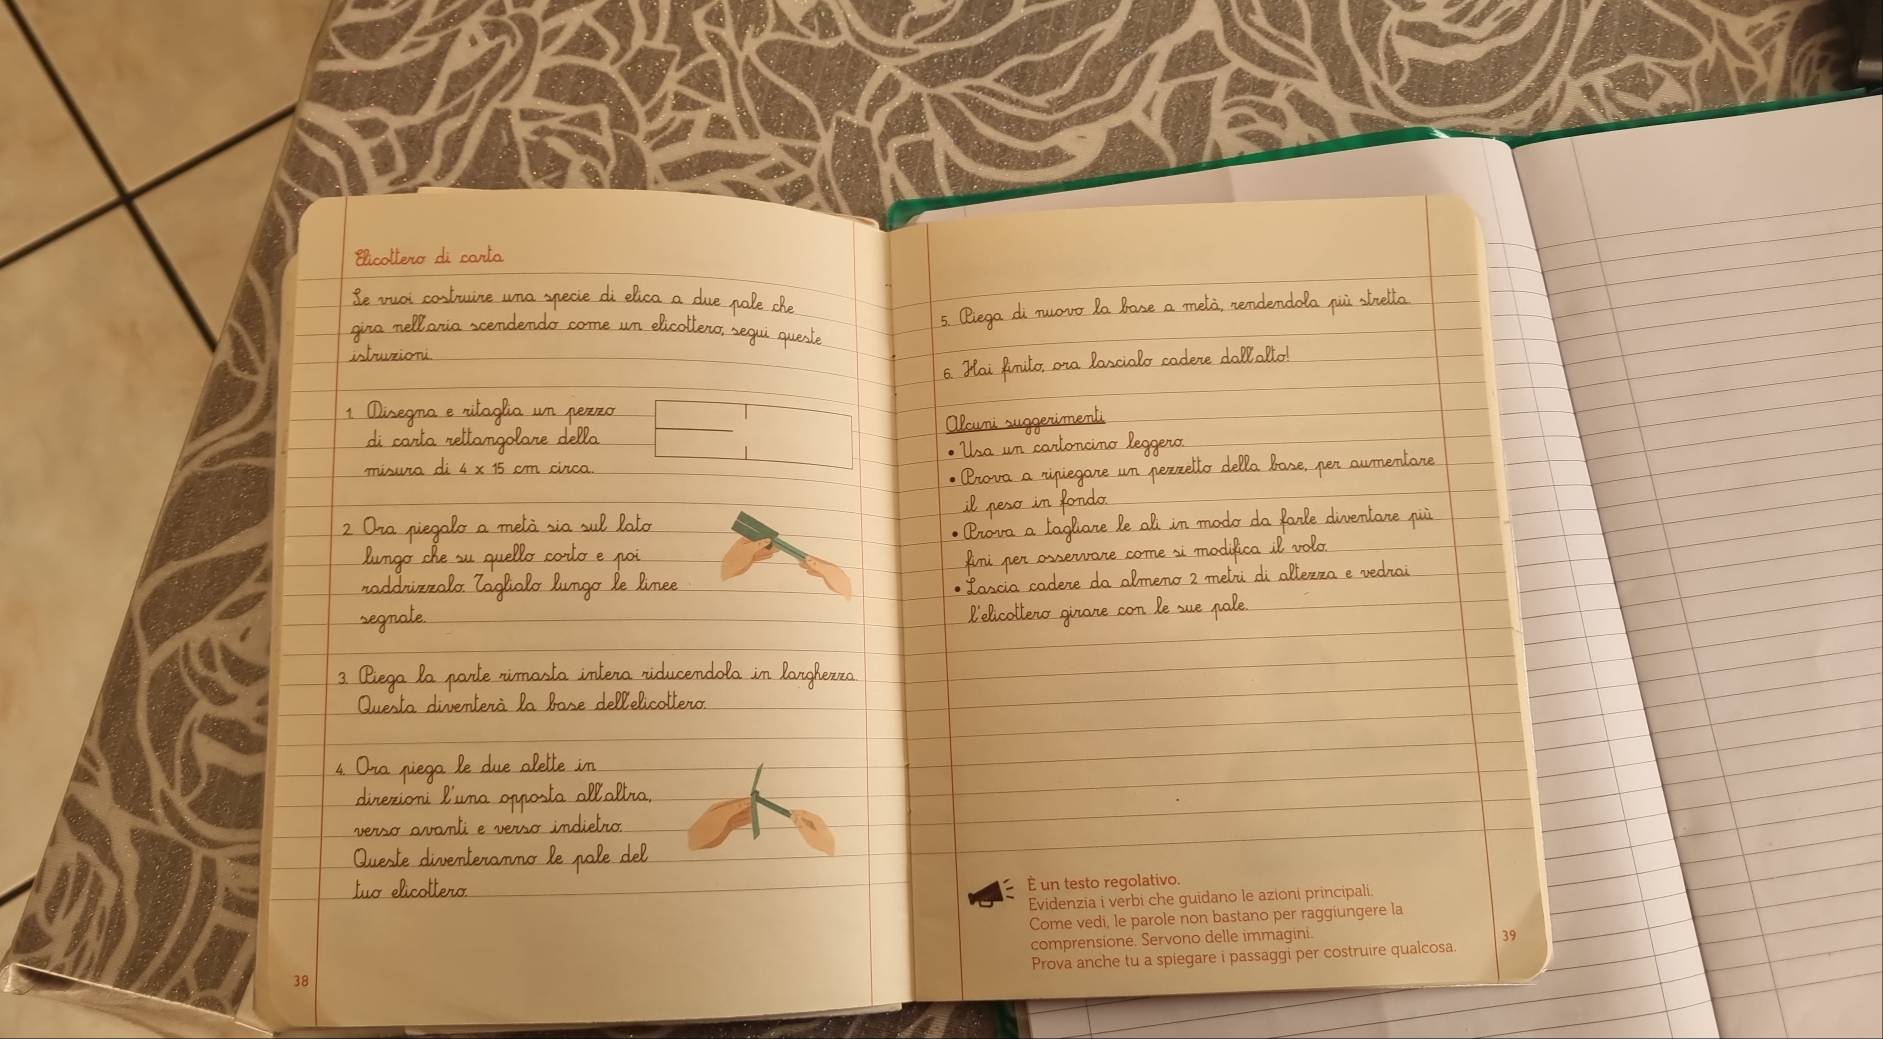 Elicottero di carta
Se vuoi costruire una specie di elica a due pale che
gira nell'aria scendendo come un elicottero, segui queste
istruzioni.
1. Disegna e ritaglia un pezzo
di carta rettangolare della
misura di 4 x 15 cm circa.
2. Ora piegalo a metà sia sul lato
lungo che su quello corto e poi
raddrizzalo. Taglialo lungo le linee
segnate.
3. Piega la parte rimasta intera riducendola in larghezza.
Questa diventerà la base dell'elicottero.
4. Ora piega le due alette in
direzioni l'una opposta all'altra,
verso avanti e verso indietro.
Queste diventeranno le pale del
tuo elicottero.
38
5. Piega di nuovo la base a metà, rendendola più stretta.
6. Hai finito, ora lascialo cadere dall'alto!
Alcuni suggerimenti
• Usa un cartoncino leggero.
• Prova a ripiegare un pezzetto della base, per aumentare
il peso in fondo.
• Prova a tagliare le ali in modo da farle diventare più
fini per osservare come si modifica il volo.
• Lascia cadere da almeno 2 metri di altezza e vedrai
l'elicottero girare con le sue pale.
È un testo regolativo.
Evidenzia i verbi che guidano le azioni principali.
Come vedi, le parole non bastano per raggiungere la
comprensione. Servono delle immagini.
Prova anche tu a spiegare i passaggi per costruire qualcosa.
39